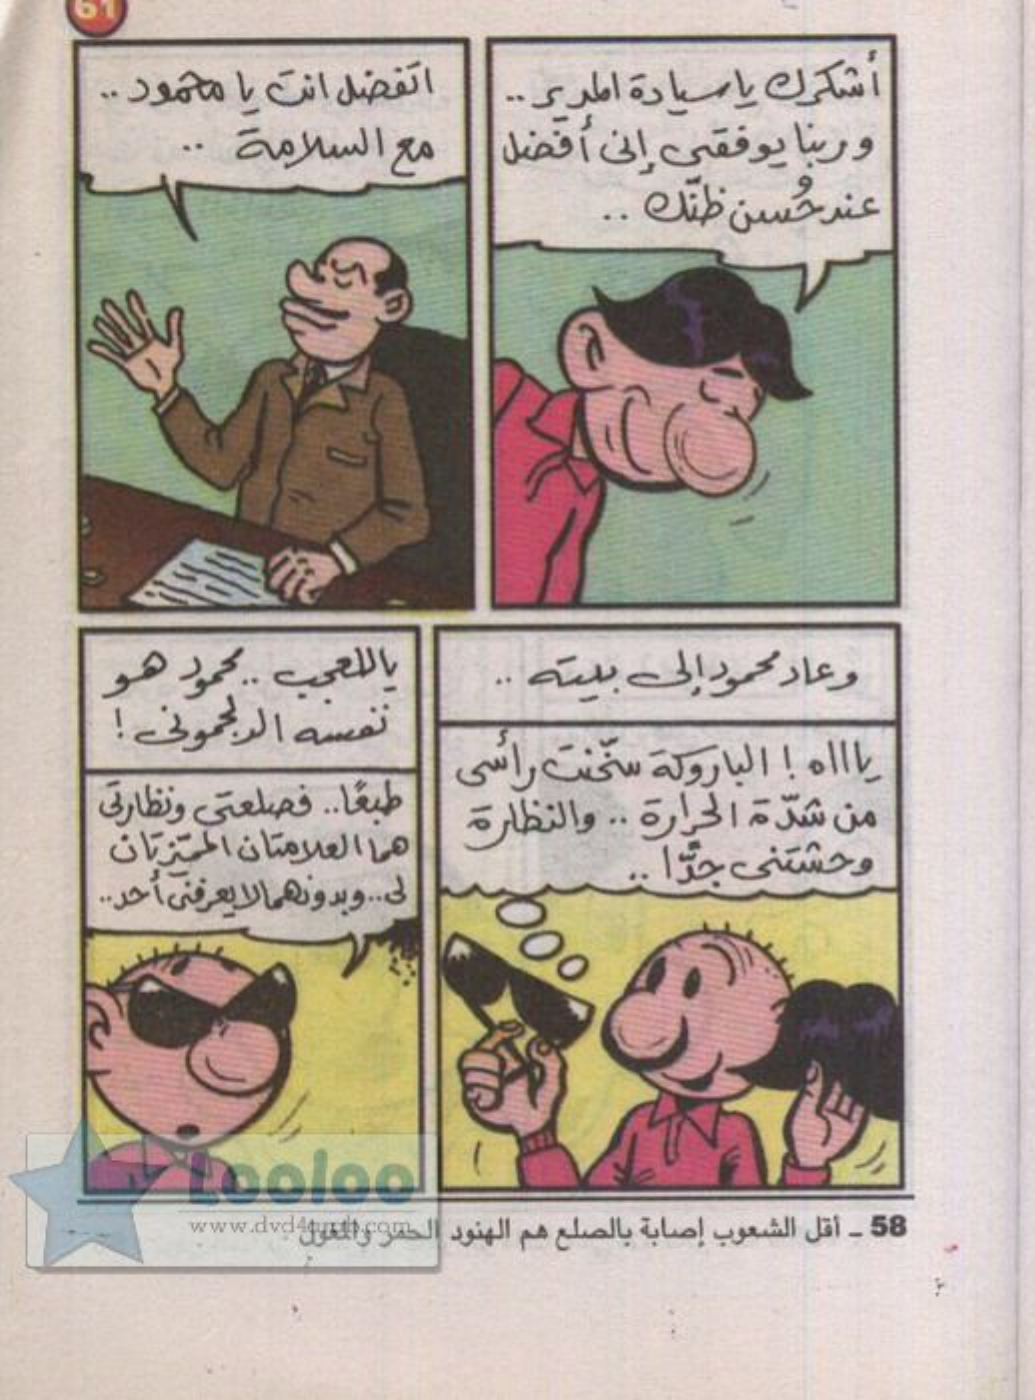 61
أشكرك يا سيادة المدير ..
وربنا يوفقنى إنى أفضل
عند حُسن ظنّك ..
اتفضل انت يا محمود ..
مع السلامة ..
وعاد محمود إلى بيته ..
ياااه ! الباروكة سخّنت رأسى
من شدّة الحرارة .. والنظارة
وحشتنى جدًّا ..
ياللعجب .. محمود هو
نفسه الدلجمونى !
طبعًا .. فصلعتى ونظارتى
هما العلامتان المميّزتان
لى .. وبدونهما لا يعرفنى أحد ..
58 ـ أقل الشعوب إصابة بالصلع هم الهنود الحمر والمغول .
Looloo
www.dvd4arab.com